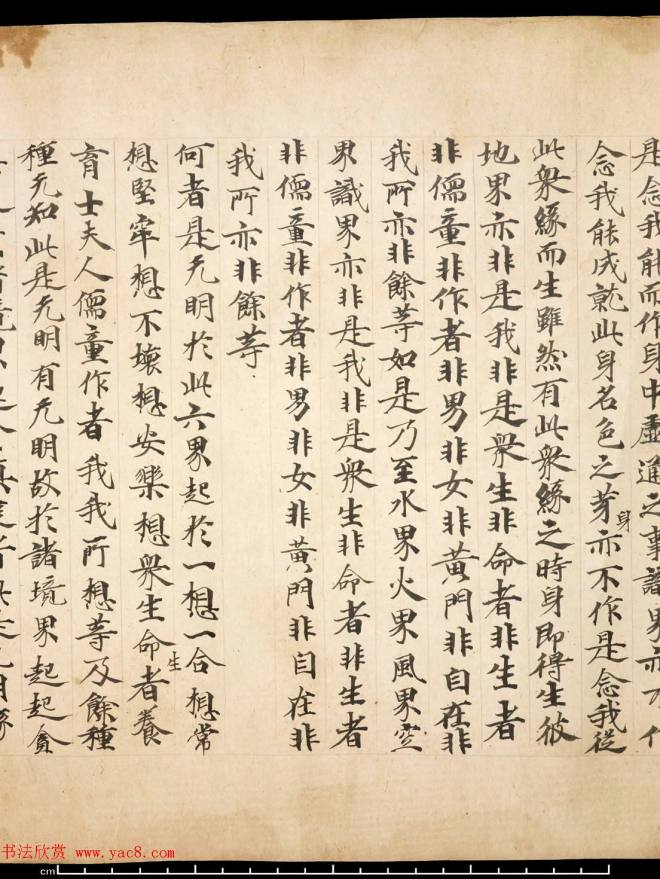 是念我能而作身中虛通之事識界亦不作
念我能成就此身名色之芽身亦不作是念我從
此衆緣而生雖然有此衆緣之時身即得生彼
地界亦非是我非是衆生非命者非生者
非儒童非作者非男非女非黃門非自在非
我所亦非餘等如是乃至水界火界風界空
界識界亦非是我非是衆生非命者非生者
非儒童非作者非男非女非黃門非自在非
我所亦非餘等
何者是无明於此六界起於一想一合想常
想堅牢想不壞想安樂想衆生命生者養
育士夫人儒童作者我我所想等及餘種
種无知此是无明有无明故於諸境界起起貪
书法欣赏 www.yac8.com
cm